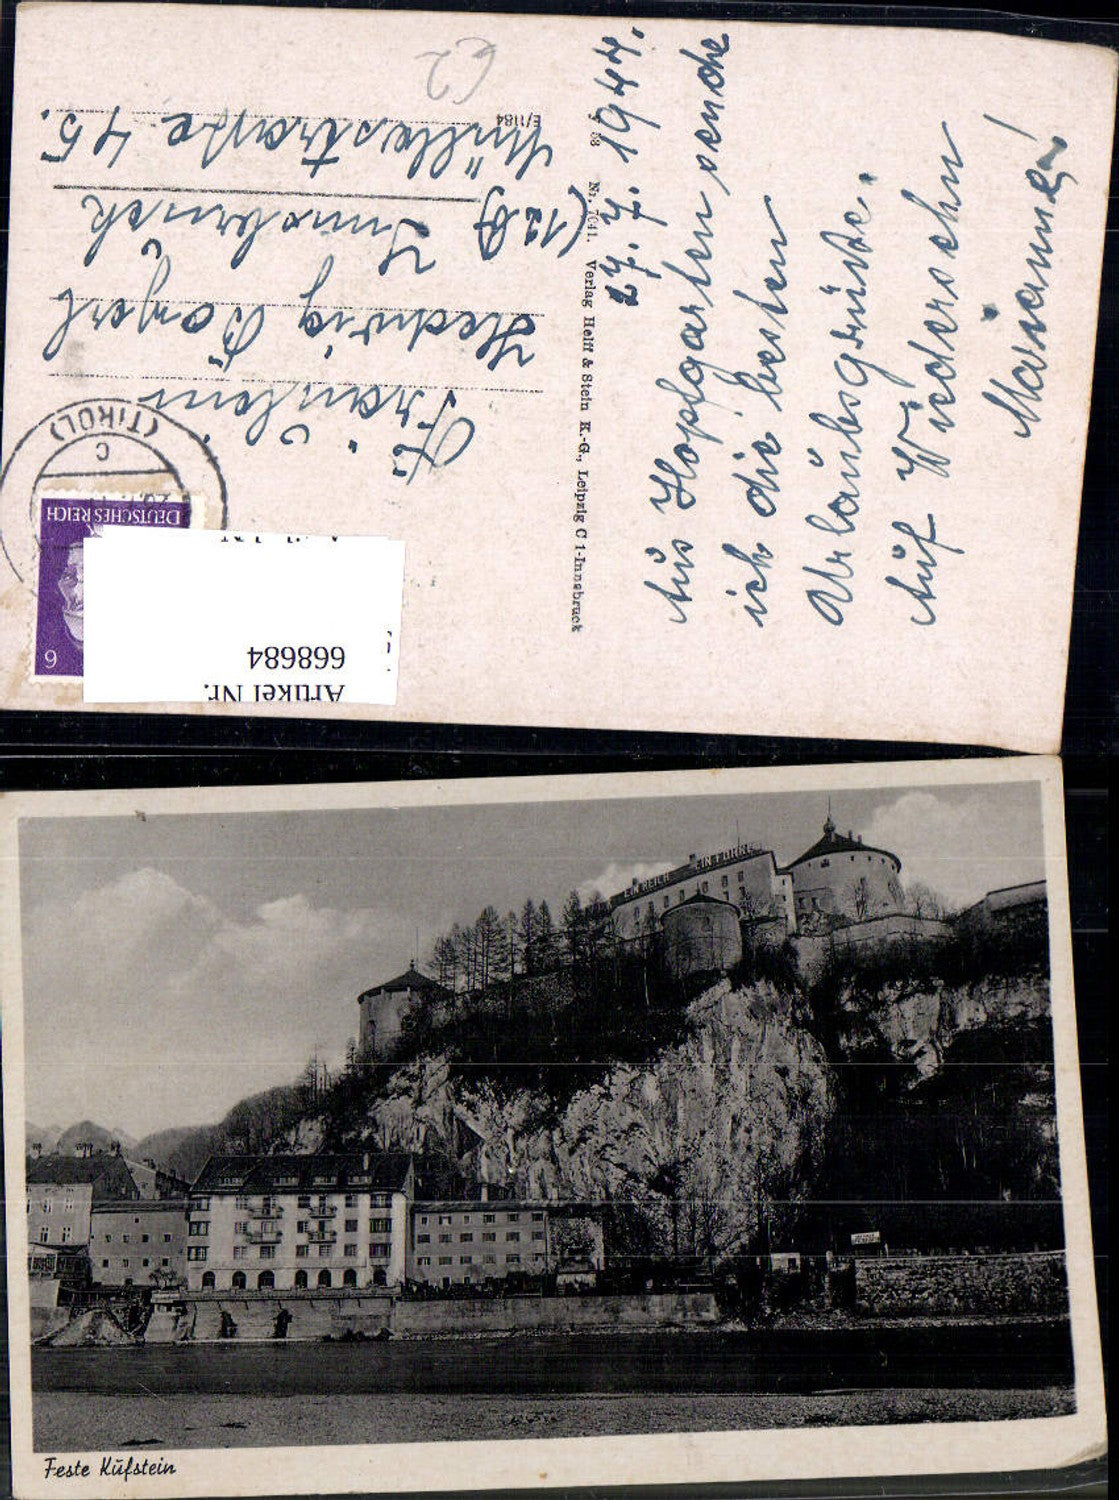 27. 7. 1944.
Aus Hopfgarten sende
ich die besten
Urlaubsgrüsse.
Auf Wiedersehn
Marianne!
Nr. 7041. Verlag Helff & Stein K.-G., Leipzig C 1-Innsbruck
E/1184
Fräulein
Hedwig
Innsbruck
45.
(TIROL)
C
DEUTSCHES REICH
6
Artikel Nr.
668684
EIN REICH EIN FÜHRER
Feste Kufstein